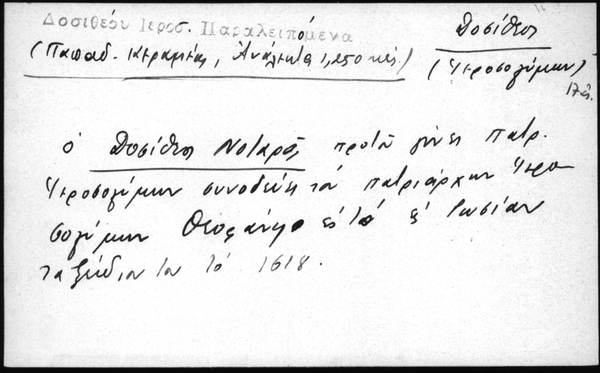 Δοσιθέου Ιεροσ. Παραλειπόμενα
(Παπαδ. Κεραμέως, Ἀνάλεκτα 1,250 κέξ.)
Δοσίθεος
(Ἱεροσολύμων)
17 αἰ.
ὁ Δοσίθεος Νοταρᾶς προτοῦ γίνει πατρ.
Ἱεροσολύμων συνοδεύει τόν πατριάρχην Ἱερο
σολύμων Θεοφάνην εἰς τό ἐν Ρωσίαν
ταξίδιον του τό 1618.